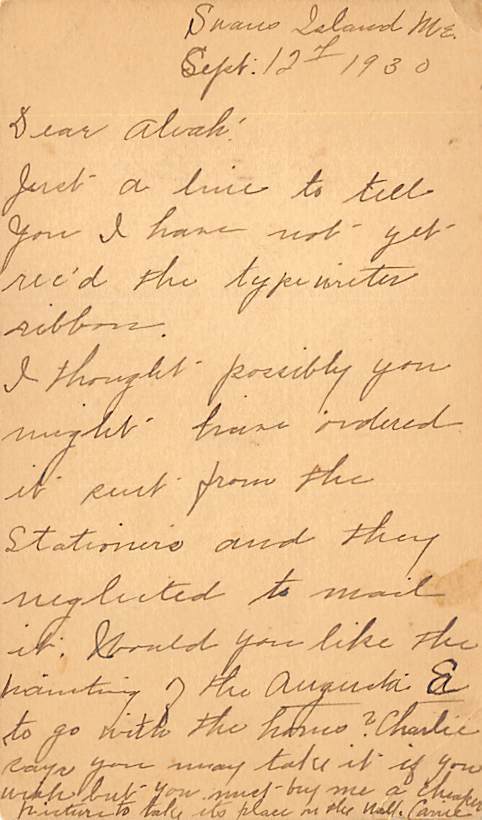 Swans Island Me.
Sept. 12th 1930
Dear Alvah!
Just a line to tell
you I have not yet
rec'd the typewriter
ribbon.
I thought possibly you
might have ordered
it sent from the
Stationers and they
neglected to mail
it. Would you like the
painting of the Augusta E
to go with the horns? Charlie
says you may take it if you
wish but you must buy me a cheaper
picture to take its place on the wall. Carrie